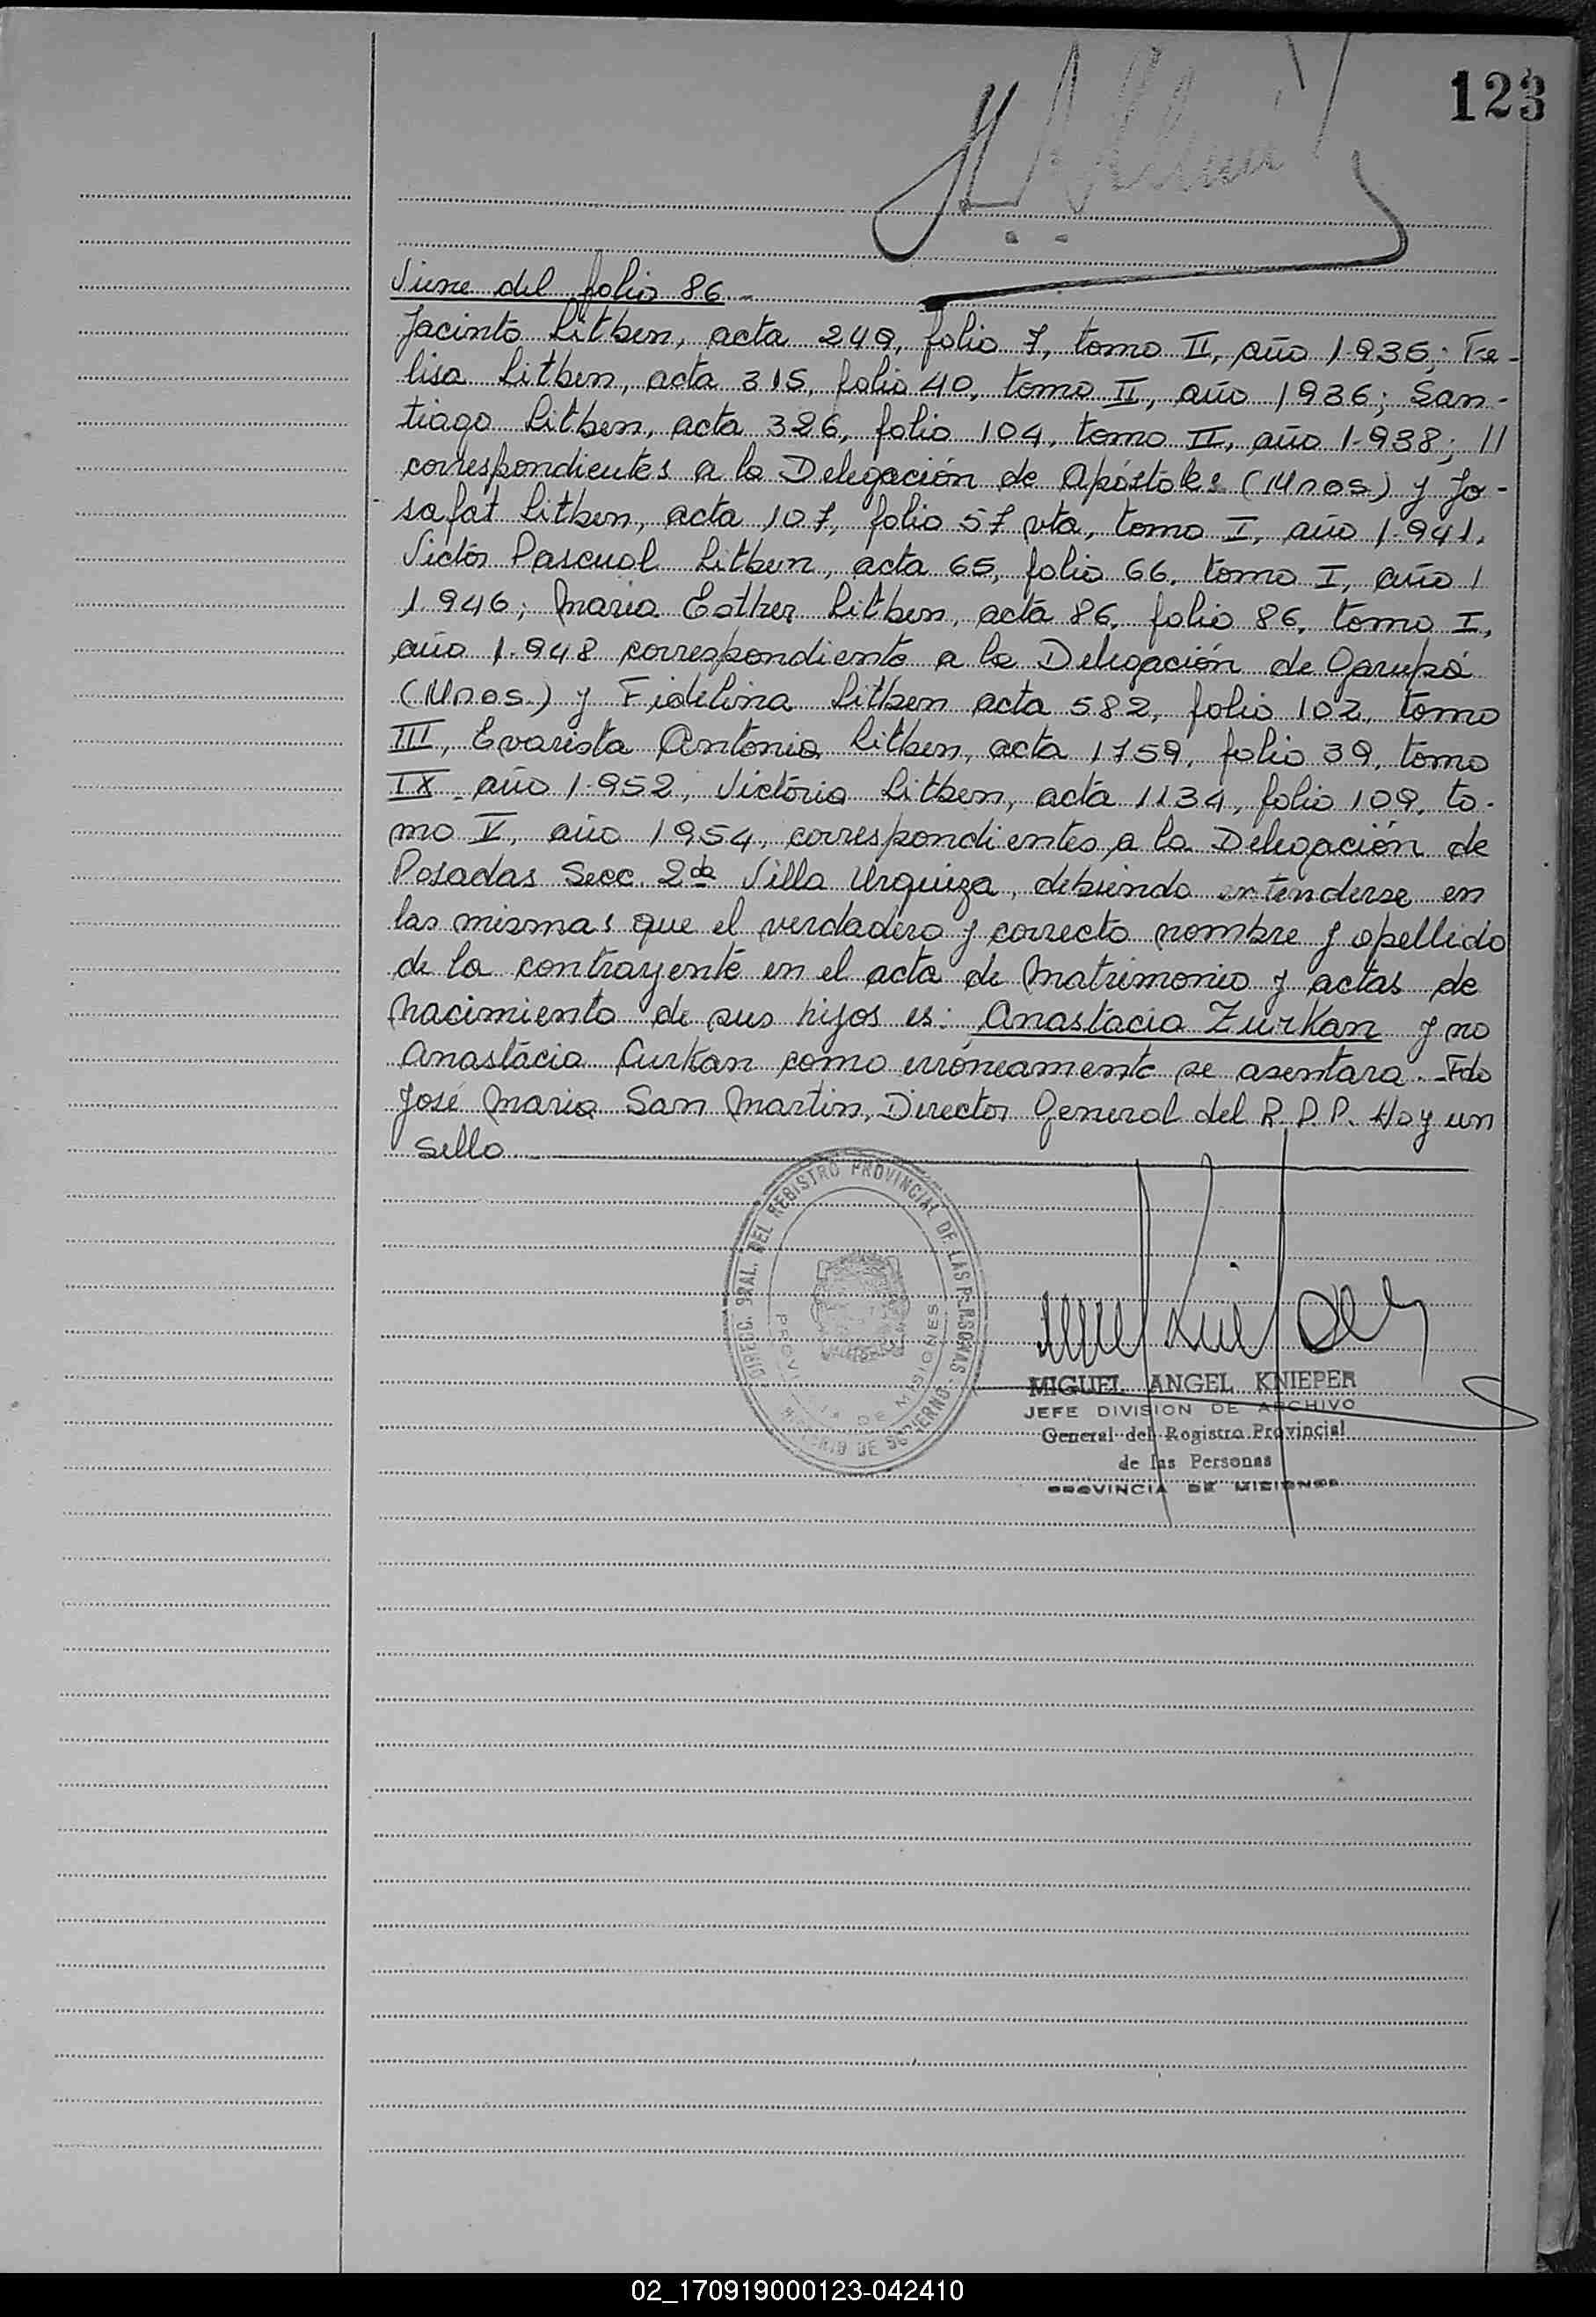 123
Viene del folio 86.-
Jacinto Litben, acta 249, folio 7, tomo II, año 1.936; Fe-
lisa Litben, acta 315, folio 40, tomo II, año 1936; San-
tiago Litben, acta 326, folio 104, tomo II, año 1.938; //
correspondientes a la Delegación de Apóstoles (Mnes) y Jo-
safat Litben, acta 107, folio 57 vta, tomo I, año 1.941.
Victor Pascual Litben, acta 65, folio 66, tomo I, año /
1.946; Maria Esther Litben, acta 86, folio 86, tomo I,
año 1.948 correspondiente a la Delegación de Garupá
(Mnes.) y Fidelina Litben acta 582, folio 102, tomo
III, Evarista Antonia Litben, acta 1759, folio 39, tomo
IX año 1.952, Victoria Litben, acta 1134, folio 109, to-
mo V, año 1954, correspondientes a la Delegación de
Posadas Secc. 2da Villa Urquiza, debiendo entenderse en
las mismas que el verdadero y correcto nombre y apellido
de la contrayente en el acta de Matrimonio y actas de
Nacimiento de sus hijos es: Anastacia Zurkan y no
Anastacia Curkan como erróneamente se asentara. Fdo
José Maria San Martin, Director General del R.P.P. Hay un
sello
DIRECC. GRAL. DEL REGISTRO PROVINCIAL DE LAS PERSONAS
PROVINCIA DE MISIONES
DE GOBIERNO
MIGUEL ANGEL KNIEPER
JEFE DIVISION DE ARCHIVO
General del Registro Provincial
de las Personas
PROVINCIA DE MISIONES
02_170919000123-042410